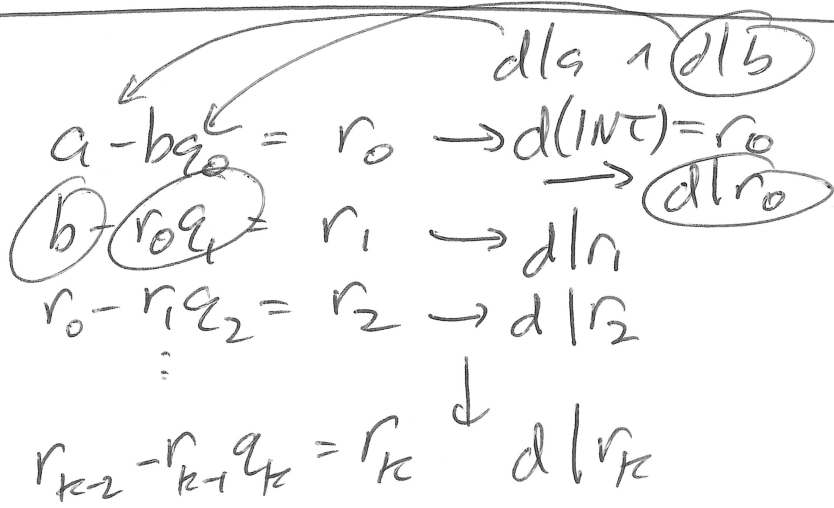 d|a ∧ d|b
a - bq₀ = r₀ → d(INT) = r₀
→ d|r₀
b - r₀q₁ = r₁ → d|r₁
r₀ - r₁q₂ = r₂ → d|r₂
⋮ ↓
rₖ₋₂ - rₖ₋₁qₖ = rₖ d|rₖ